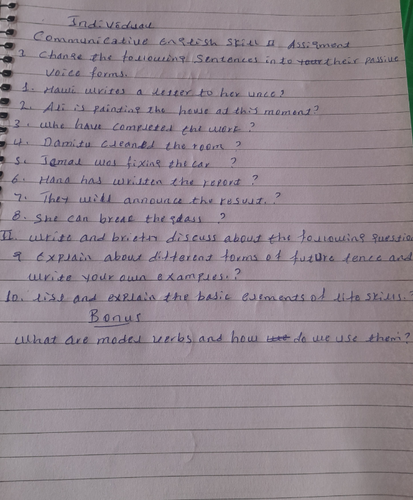 Individual
Communicative English Skill II Assigment
I. Change the following sentences in to their passive
voice forms.
1. Hawi writes a letter to her
2. Ali is painting the house at this moment?
3. who have completed the work ?
4. Damitu cleaned the room ?
5. Jemal was fixing the car ?
6. Hana has written the report ?
7. They will announce the result. ?
8. She can break the glass ?
II. Write and briefly discuss about the following question
9 Explain about different forms of future tence and
write your own examples. ?
10. list and explain the basic elements of life skills. ?
Bonus
What are model verbs and how do we use them?